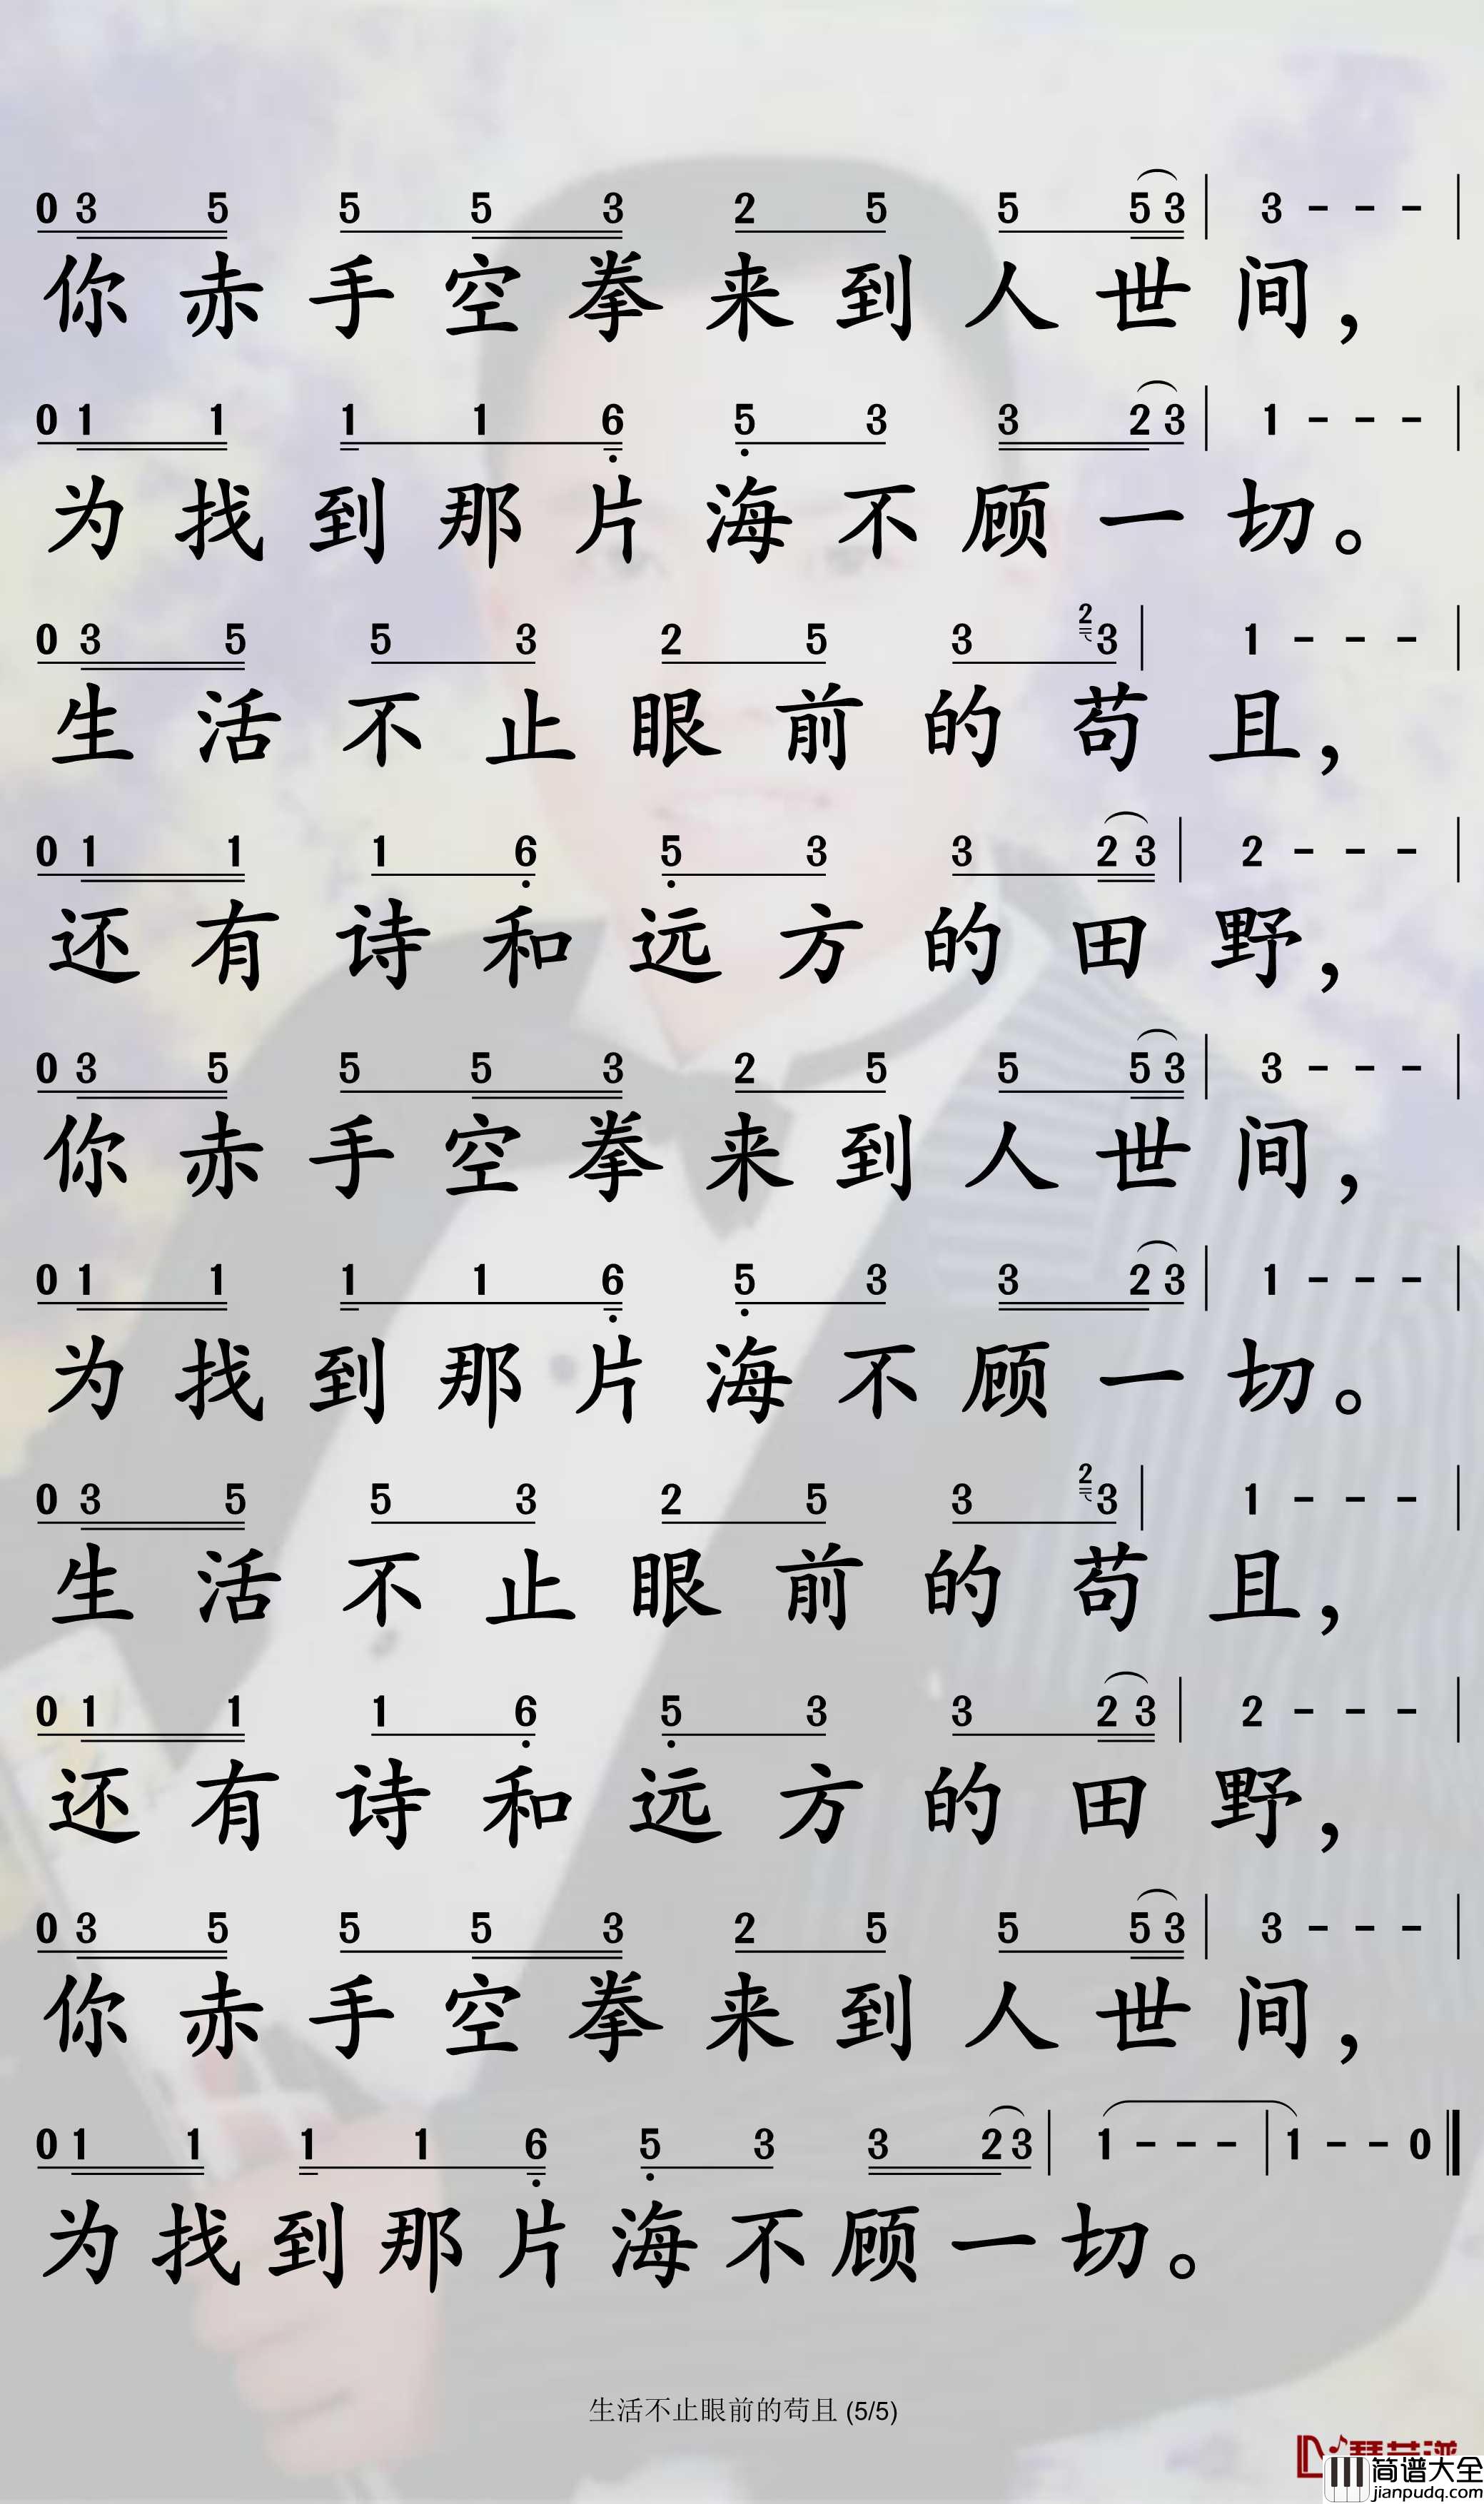 0 3 5 5 5 3 2 5 5 5 3 | 3 - - - |
你赤手空拳来到人世间，
0 1 1 1 1 6 5 3 3 2 3 | 1 - - - |
为找到那片海不顾一切。
0 3 5 5 3 2 5 3 2 3 | 1 - - - |
生活不止眼前的苟且，
0 1 1 1 6 5 3 3 2 3 | 2 - - - |
还有诗和远方的田野，
0 3 5 5 5 3 2 5 5 5 3 | 3 - - - |
你赤手空拳来到人世间，
0 1 1 1 1 6 5 3 3 2 3 | 1 - - - |
为找到那片海不顾一切。
0 3 5 5 3 2 5 3 2 3 | 1 - - - |
生活不止眼前的苟且，
0 1 1 1 6 5 3 3 2 3 | 2 - - - |
还有诗和远方的田野，
0 3 5 5 5 3 2 5 5 5 3 | 3 - - - |
你赤手空拳来到人世间，
0 1 1 1 1 6 5 3 3 2 3 | 1 - - - | 1 - - 0
为找到那片海不顾一切。
生活不止眼前的苟且 (5/5)
简谱大全
jianpudq.com